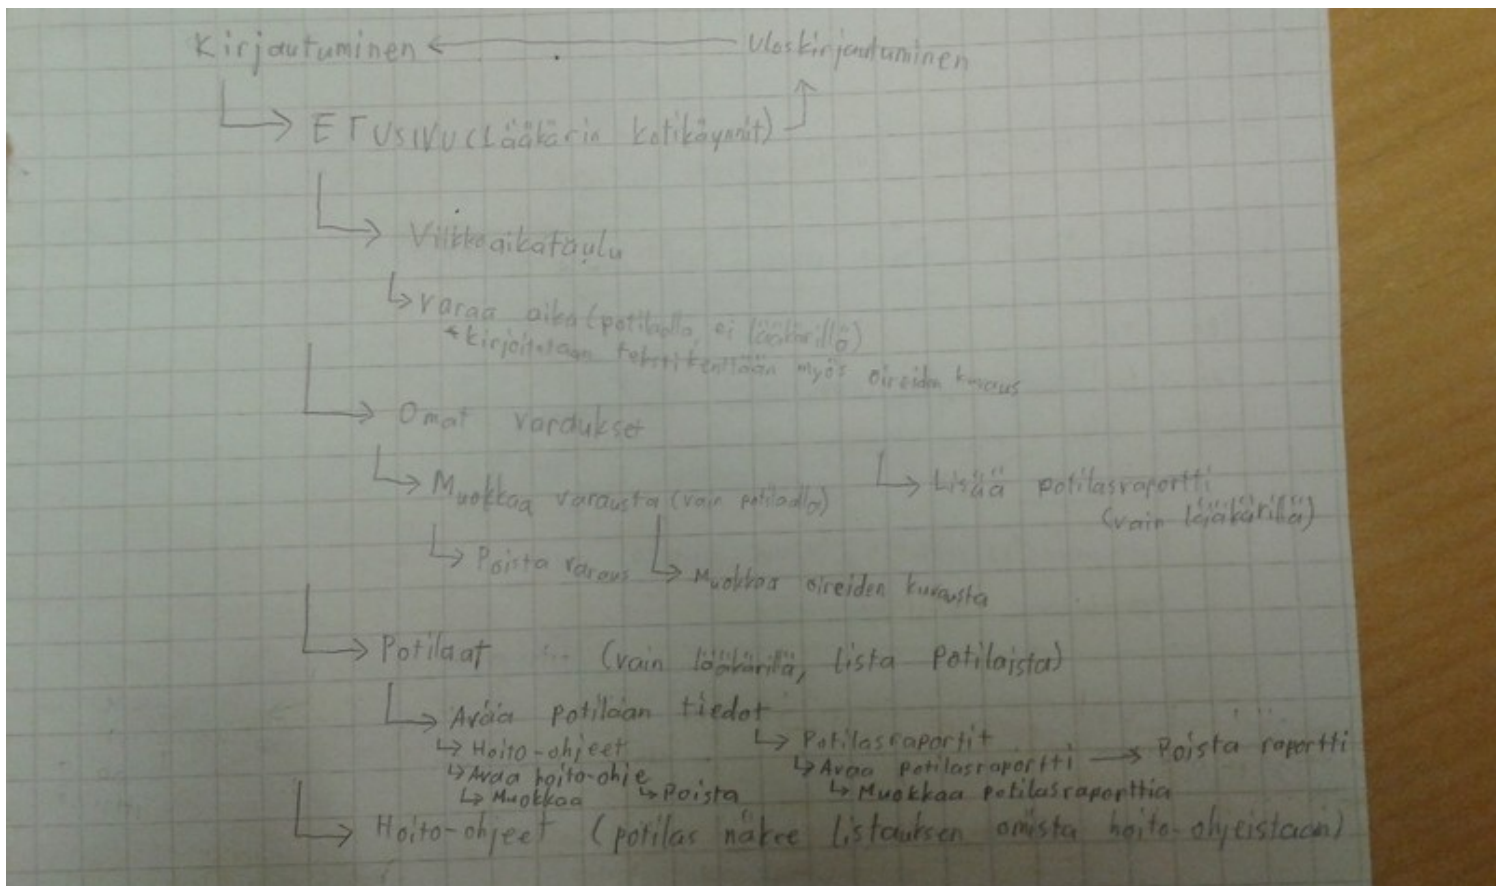 Kirjautuminen ← Uloskirjautuminen
↳ ETUSIVU (Lääkärin kotikäynnit)
↳ Viikkoaikataulu
↳ Varaa aika (potilaalla, ei lääkärillä)
* kirjoitetaan tekstikenttään myös oireiden kuvaus
↳ Omat varaukset
↳ Muokkaa varausta (vain potilaalla) ↳ Lisää potilasraportti
(vain lääkärillä)
↳ Poista varaus ↳ Muokkaa oireiden kuvausta
↳ Potilaat (vain lääkärillä, lista potilaista)
↳ Avaa potilaan tiedot
↳ Hoito-ohjeet ↳ Potilasraportit
↳ Avaa hoito-ohje ↳ Avaa potilasraportti → Poista raportti
↳ Muokkaa ↳ Poista ↳ Muokkaa potilasraporttia
↳ Hoito-ohjeet (potilas näkee listauksen omista hoito-ohjeistaan)